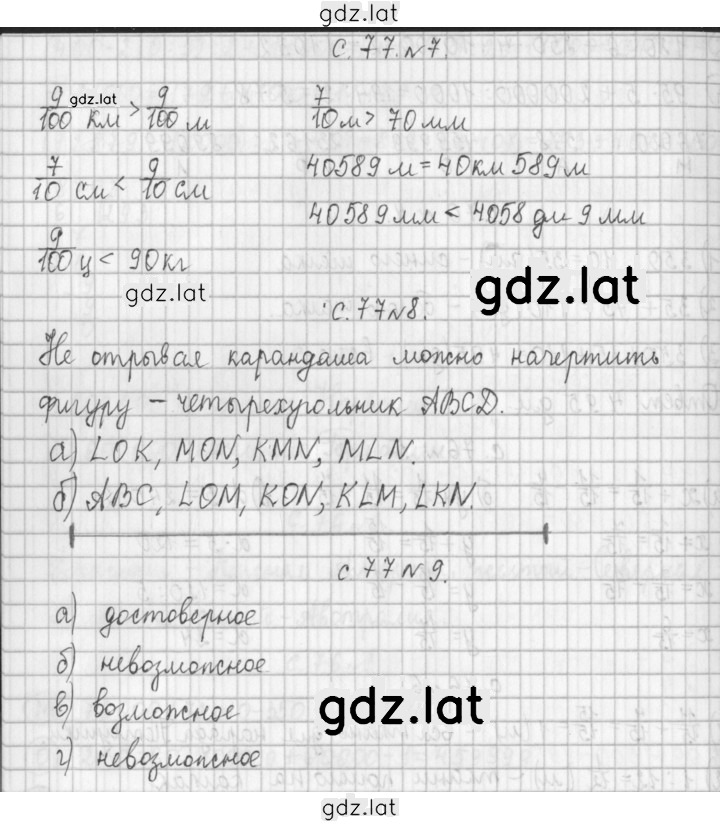 gdz.lat
с. 77. №7.
9/100 км > 9/100 м 7/10 м > 70 мм
gdz.lat
7/10 см < 9/10 см 40589 м = 40 км 589 м
40589 мм < 4058 дм 9 мм
9/100 ц < 90 кг
gdz.lat
gdz.lat
с. 77 №8.
Не отрывая карандаша можно начертить
фигуру – четырехугольник ABCD.
а) LOK, MON, KMN, MLN.
б) ABC, LOM, KON, KLM, LKN.
с 77 №9.
а) достоверное
б) невозможное
в) возможное
gdz.lat
г) невозможное
gdz.lat